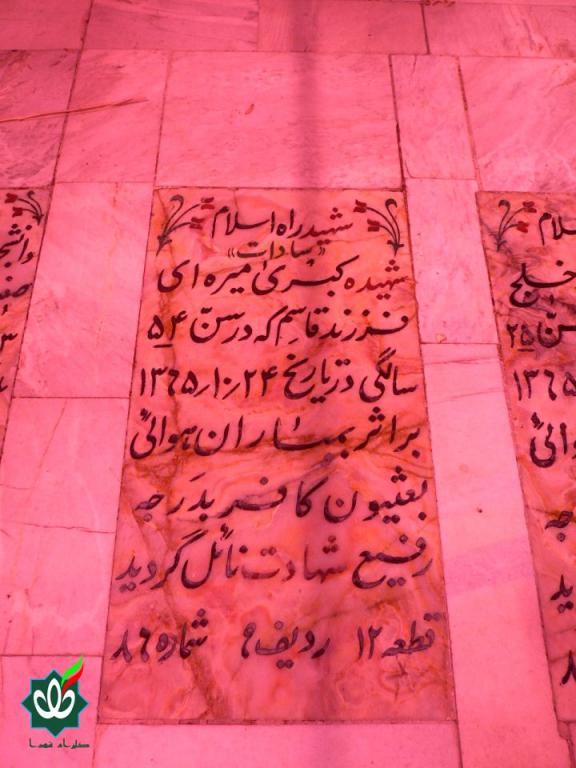 شهید راه اسلام
«سادات»
شهیده کبری میره ای
فرزند قاسم که در سن ۵۴
سالگی در تاریخ ۱۳۶۵٫۱۰٫۲۴
براثر بمباران هوائی
بعثیون کافر بدرجه
رفیع شهادت نائل گردید
قطعه ۱۲ ردیف ۹ شماره ۸۶
سلام
خلیج
سن ۲۵
۱۳۶۵
وائی
جه
ید